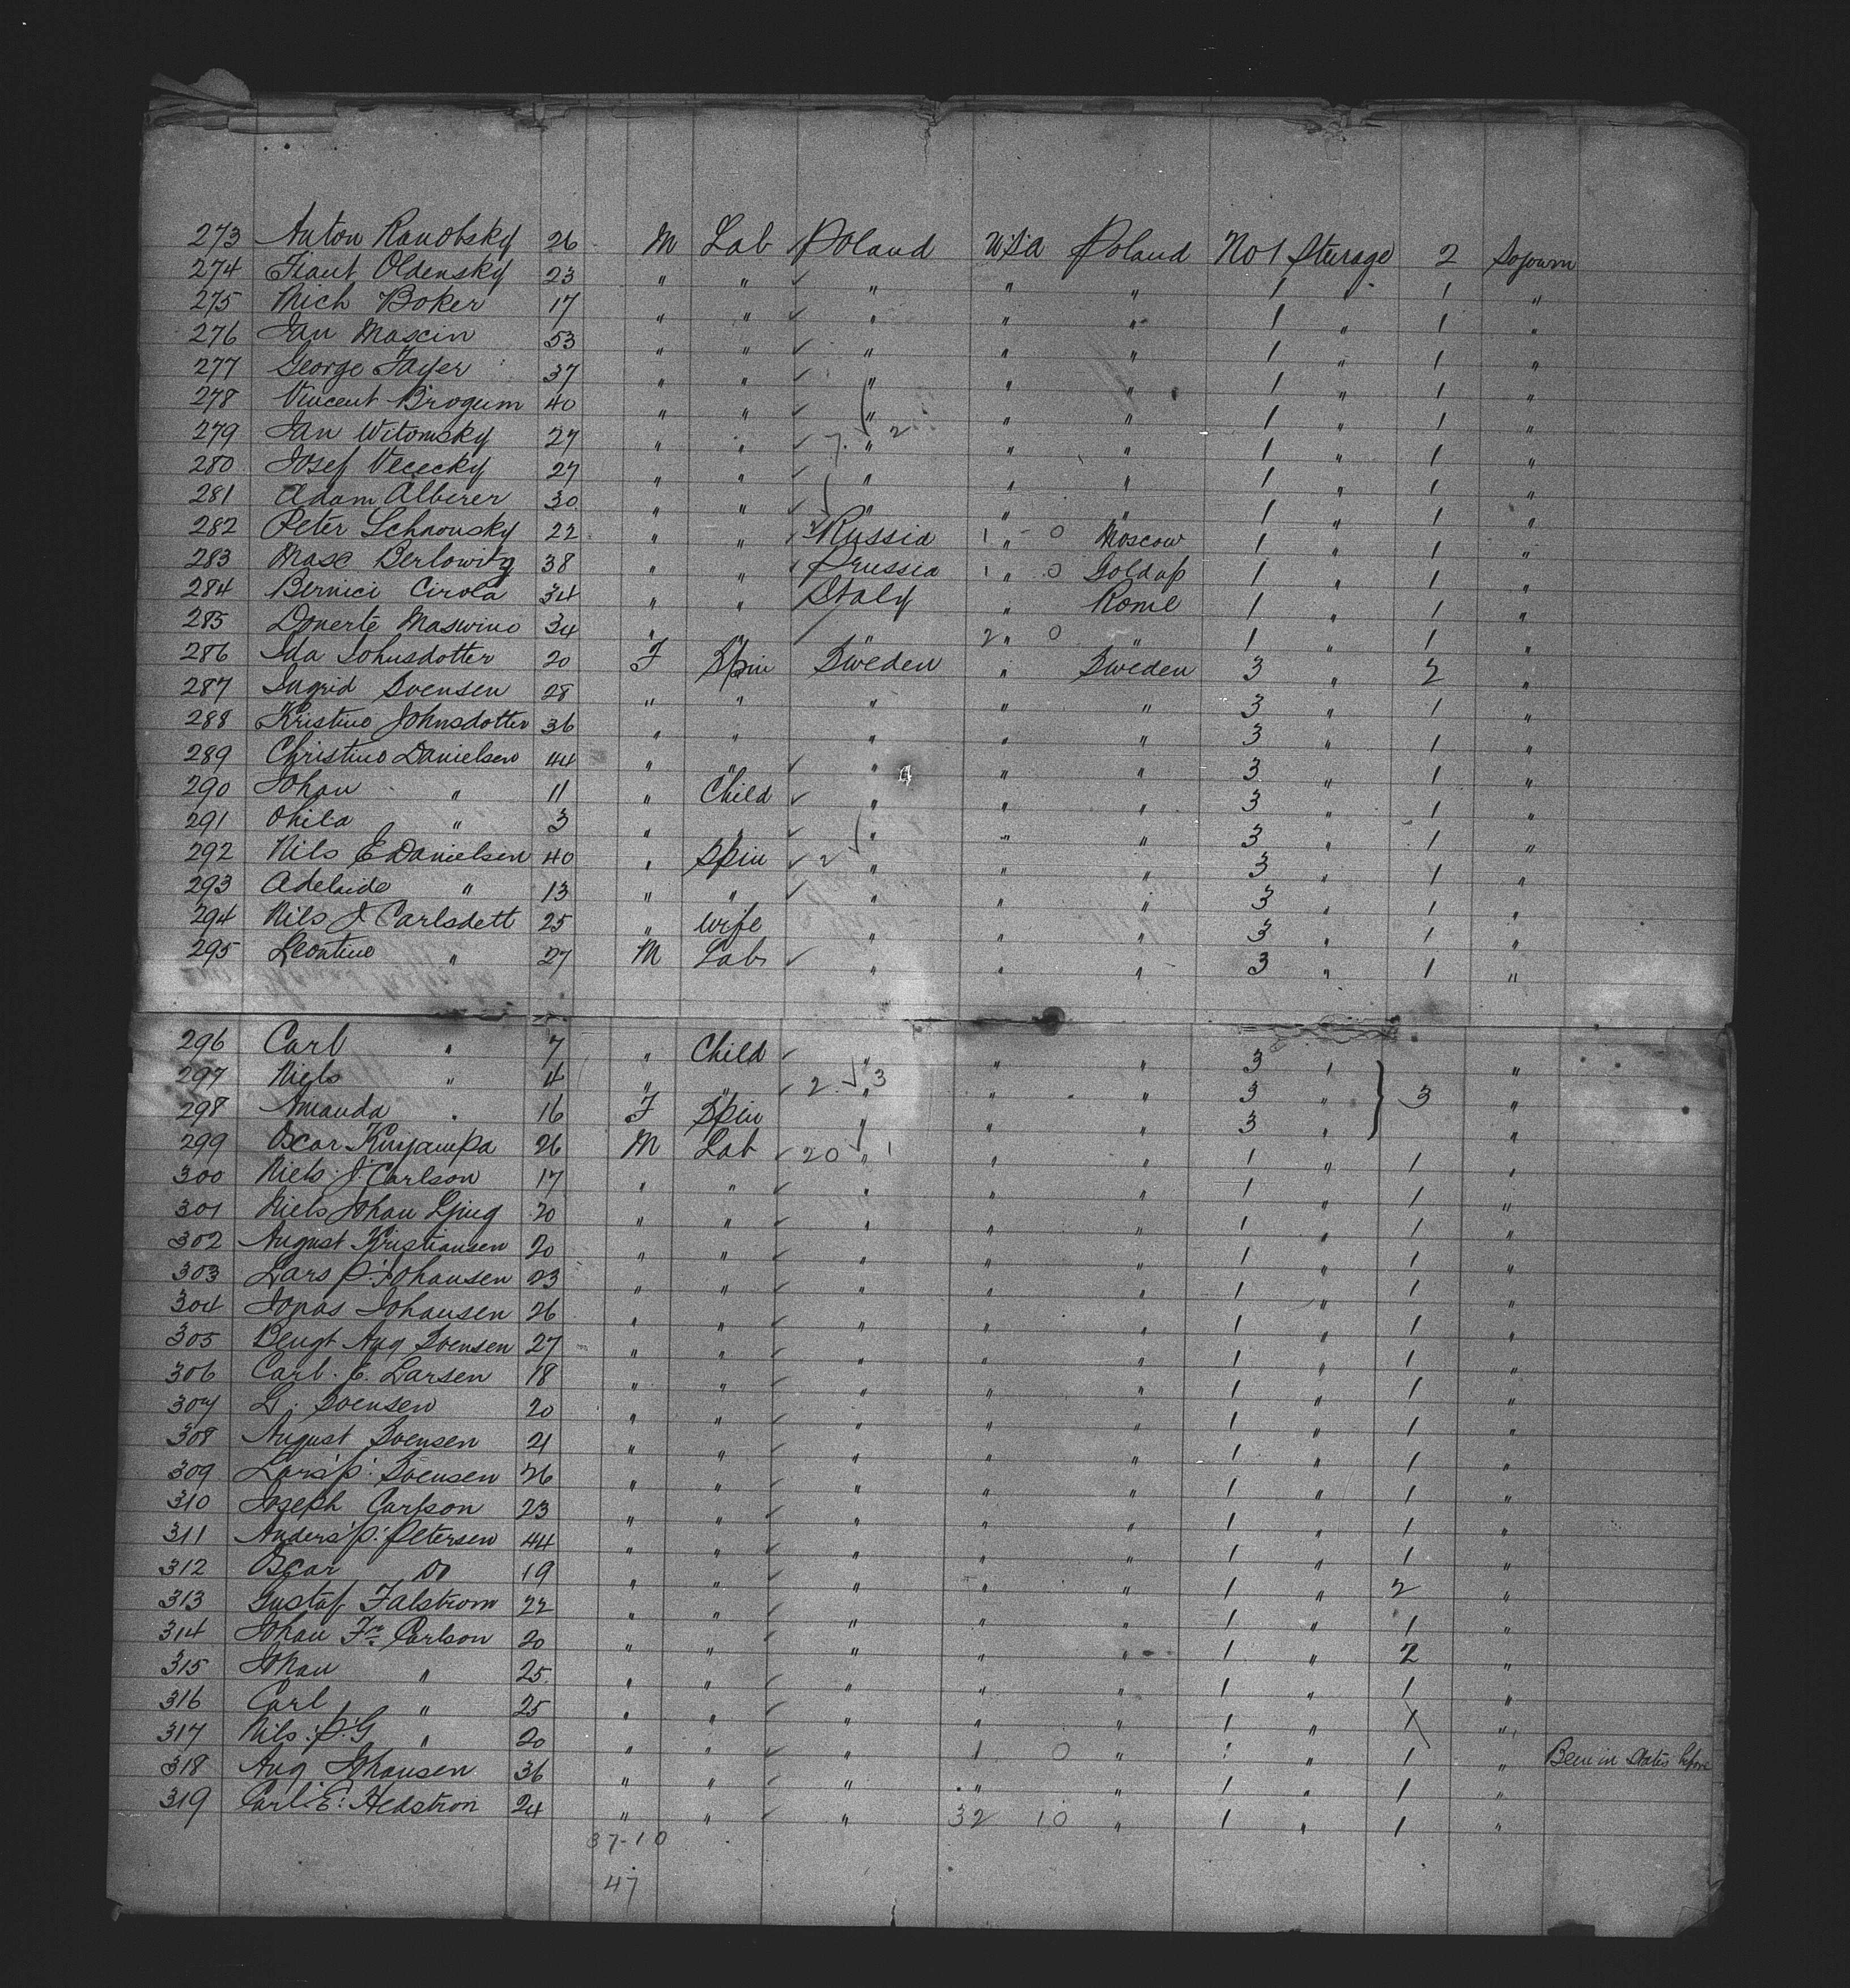 273 Anton Ranobsky 26 M Lab Poland USA Poland No 1 Sterage 2 Sojourn
274 Oldensky 23 " " ✓ " " " 1 " 1 "
275 Mich Boker 17 " " ✓ " " " 1 " 1 "
276 Jan Mascin 53 " " ✓ " " " 1 " 1 "
277 George Fayer 37 " " ✓ " " " 1 " 1 "
278 Vincent Brogum 40 " " ✓ " " " 1 " 1 "
279 Jan Witomsky 27 " " ✓ 7 " 2 " " 1 " 1 "
280 Josef Vececky 27 " " ✓ " " " 1 " 1 "
281 Adam Alberer 30 " " ✓ " " " 1 " 1 "
282 Peter Schaousky 22 " " Russia 1 " 0 Moscow 1 " 1 "
283 Masc Berlowitz 38 " " Prussia 1 " 0 Goldap 1 " 1 "
284 Bernici Cirola 34 " " Italy " Rome 1 " 1 "
285 Donerte Maswino 34 " " " 2 " 0 " 1 " 1 "
286 Ida Johnsdotter 20 F Spin Sweden " Sweden 3 " 2 "
287 Ingrid Svensen 28 " " " " " 3 " 1 "
288 Kristino Johnsdotter 36 " " " " " 3 " 1 "
289 Christino Danielsen 44 " " ✓ " " " 3 " 1 "
290 Johan " 11 " Child ✓ " " " 3 " 1 "
291 Ohila " 3 " " ✓ " " " 3 " 1 "
292 Nils E Danielsen 40 " Spin ✓ 2 " " " 3 " 1 "
293 Adelaide " 13 " " ✓ " " " 3 " 1 "
294 Nils J Carlsdett 25 " wife " " " 3 " 1 "
295 Leontino " 27 M Lab ✓ " " " 3 " 1 "
296 Carl " 7 " Child ✓ " " " 3 " "
297 Niels " 4 " " ✓ 2 " 3 " " 3 " 3 "
298 Amanda " 16 F Spin " " " 3 " "
299 Oscar Kinjampa 26 M Lab ✓ 20 " 1 " " 1 " 1 "
300 Niels J. Carlson 17 " " ✓ " " " 1 " 1 "
301 Niels Johan Ljing 20 " " ✓ " " " 1 " 1 "
302 August Kristiansen 20 " " ✓ " " " 1 " 1 "
303 Lars P. Johansen 23 " " ✓ " " " 1 " 1 "
304 Jonas Johansen 26 " " ✓ " " " 1 " 1 "
305 Bengt Aug Svensen 27 " " ✓ " " " 1 " 1 "
306 Carl. E. Larsen 18 " " ✓ " " " 1 " 1 "
307 L. Svensen 20 " " ✓ " " " 1 " 1 "
308 August Svensen 21 " " ✓ " " " 1 " 1 "
309 Lars P. Svensen 26 " " ✓ " " " 1 " 1 "
310 Joseph Carlson 23 " " ✓ " " " 1 " 1 "
311 Anders P. Petersen 44 " " ✓ " " " 1 " 1 "
312 Oscar Do 19 " " ✓ " " " 1 " 2 "
313 Gustaf Falstrom 22 " " ✓ " " " 1 " 1 "
314 Johan Fr Carlson 20 " " ✓ " " " 1 " 2 "
315 Johan " 25 " " ✓ " " " 1 " 1 "
316 Carl " 25 " " ✓ " " " 1 " 1 "
317 Nils P. G " 20 " " ✓ " 1 0 " 1 " 1 " Been in States before
318 Aug Johansen 36 " " ✓ " " " 1 " 1 "
319 Carl E. Hedstron 24 " " ✓ " 32 10 " 1 " 1 "
37-10
47